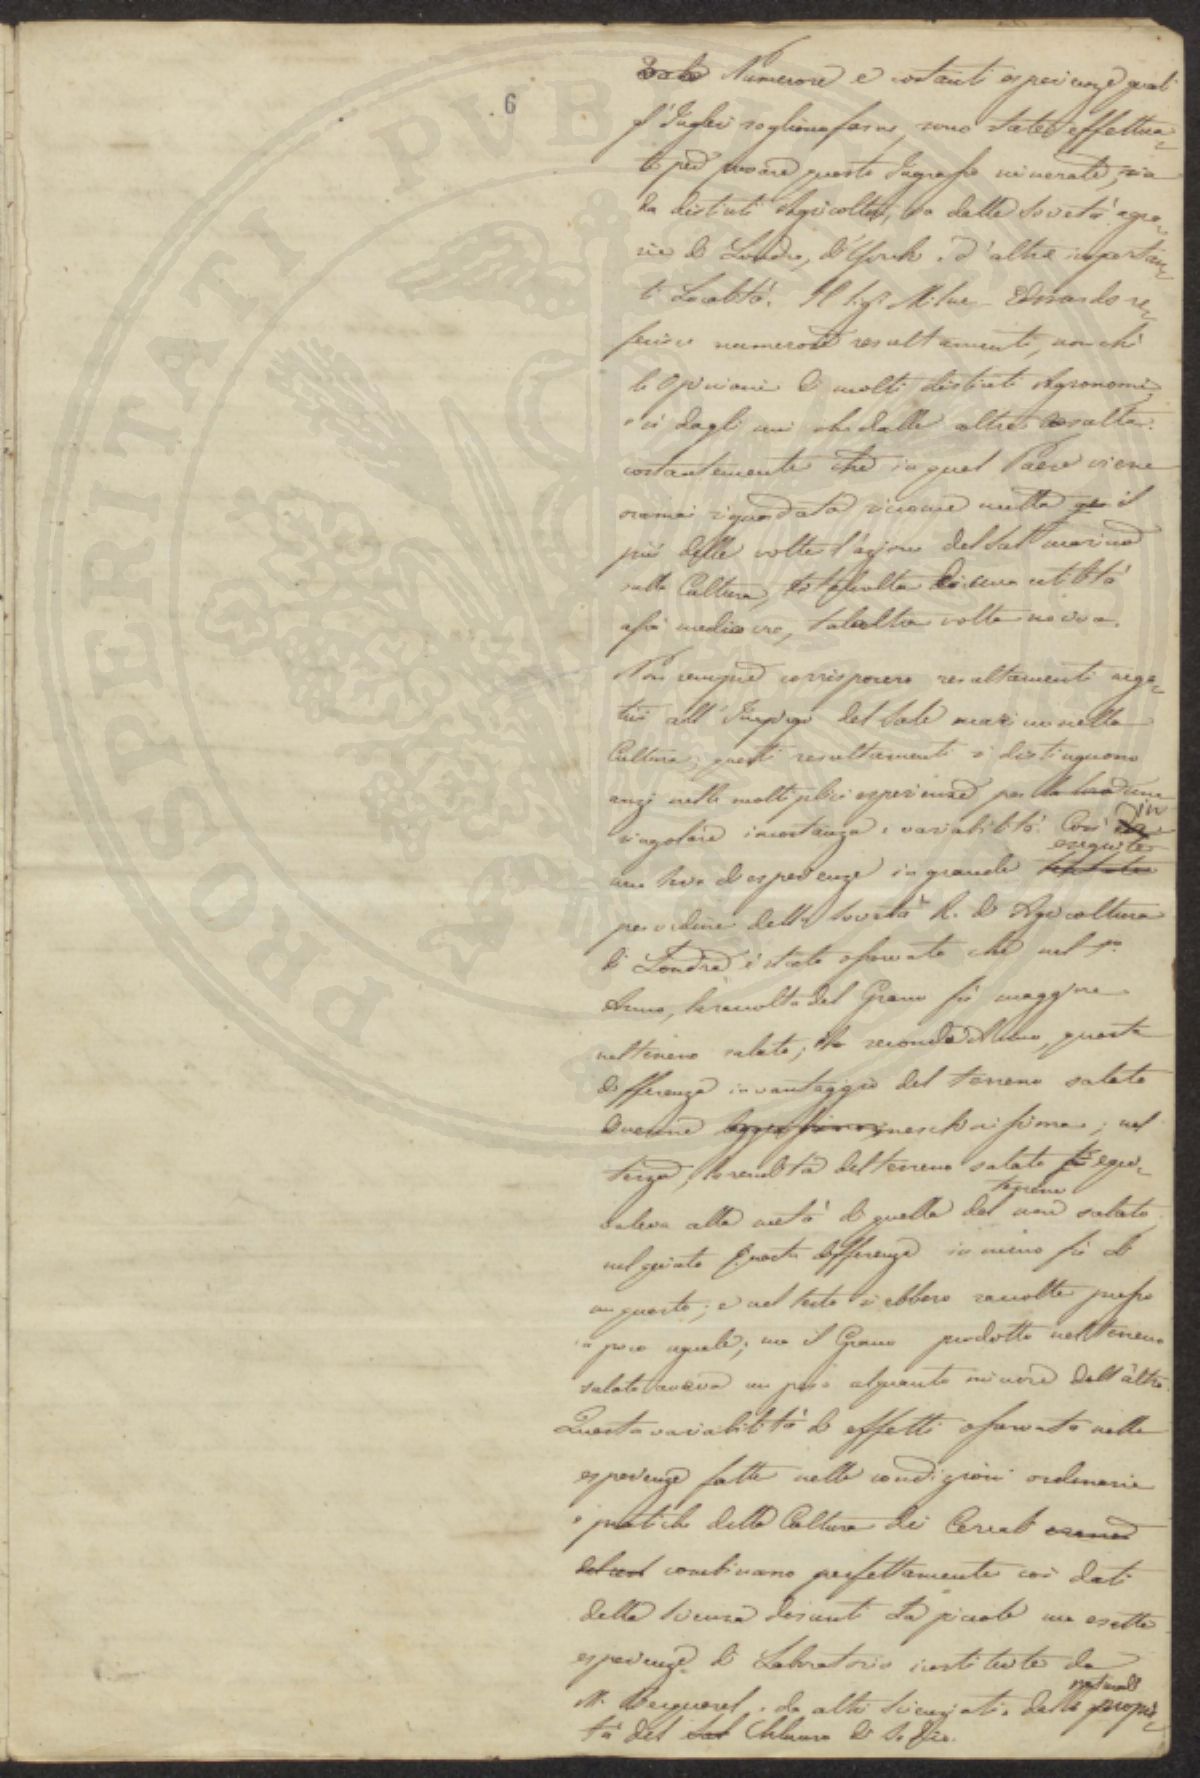 6
Numerose e costanti esperienze quali
gl'Inglesi sogliono farne, sono state effettua-
te per provare questo Ingrasso minerale, sia
da distinti Agricoltori, sia dalle Società agra-
rie di Londra, di York e d'altre importan-
ti Località. Il Sigr. Milne Edwards re-
ferisce numerosi resultamenti, non chè
le Opinioni di molti distinti Agronomi,
e sì dagli uni che dalle altre resulta
costantemente che in quel Paese viene
oramai riguardata siccome nulla il
più delle volte l'azione del Sal marino
sulla Cultura, talvolta di una utilità
assai mediocre, tal altra volta nociva.
Non sempre corrisposero resultamenti nega-
tivi all'Impiego del Sale marino nella
Cultura; questi resultamenti si distinguono
anzi nelle moltiplici esperienze per una
singolare incostanza e variabilità. Così in
una serie di esperienze in grande eseguite
per ordine della Società R. di Agricoltura
di Londra è stato osservato che nel 1mo
Anno, la raccolta del Grano fù maggiore
nel terreno salato; il secondo Anno, questa
differenza in vantaggio del terreno salato
divenne meschinissima; nel
terzo, la rendita del terreno salato equi-
valeva alla metà di quella del terreno non salato,
nel quinto questa differenza in meno fù di
un quarto; e nel sesto si ebbero raccolte presso
a poco uguali; ma il Grano prodotto nel terreno
salato aveva un peso alquanto minore dell'altro.
Questa variabilità di effetti osservata nelle
esperienze fatte nelle condizioni ordinarie
e pratiche della Cultura dei Cereali
combinano perfettamente coi dati
della Scienza desunti da piccole ma esatte
esperienze di Laboratorio instituite da
M. Becquerel e da altri Scienziati, dalle naturali propie-
tà del Cloruro di Sodio.
PROSPERITATI PVBLIC